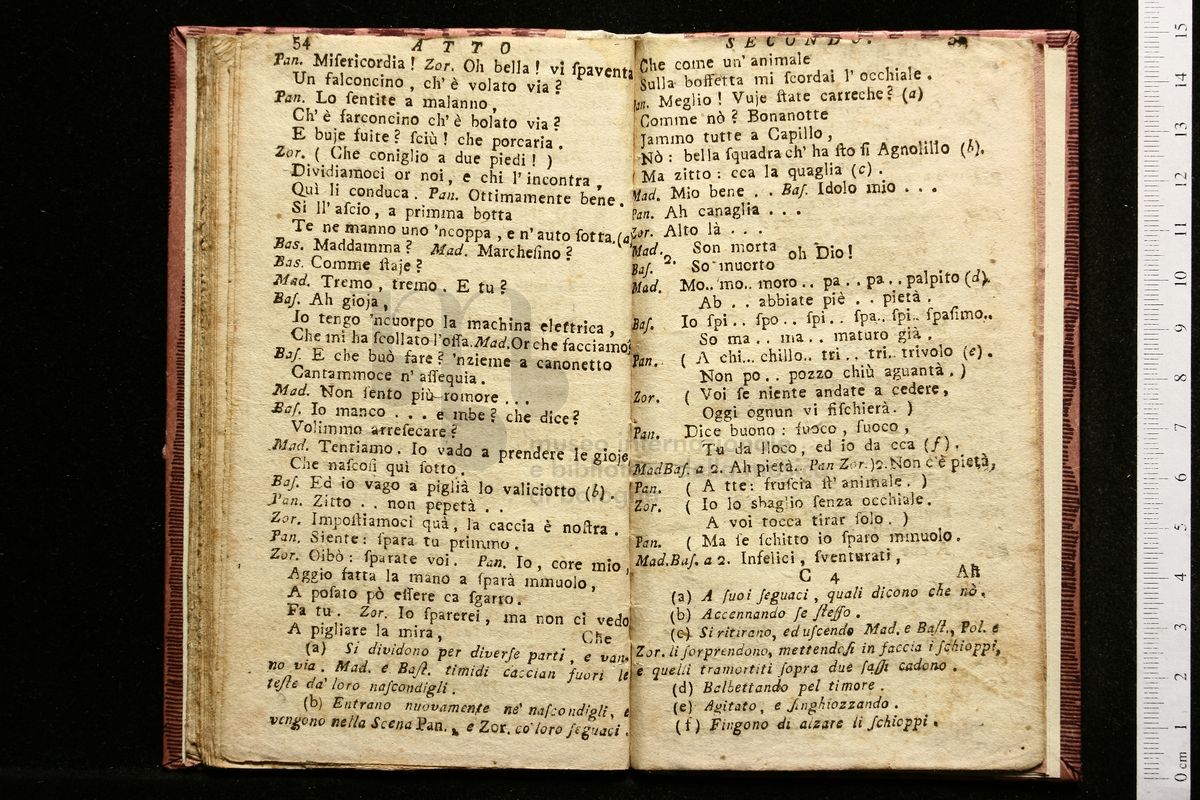 54 ATTO
Pan. Miſericordia! Zor. Oh bella! vi ſpaventa
Un falconcino, ch' è volato via?
Pan. Lo ſentite a malanno,
Ch' è farconcino ch' è bolato via?
E buje fuite? ſciù! che porcaria.
Zor. ( Che coniglio a due piedi! )
Dividiamoci or noi, e chi l' incontra,
Quì li conduca. Pan. Ottimamente bene.
Si ll' aſcio, a primma botta
Te ne manno uno 'ncoppa, e n' auto ſotta. (a)
Bas. Maddamma? Mad. Marcheſino?
Bas. Comme ſtaje?
Mad. Tremo, tremo. E tu?
Baſ. Ah gioja,
Io tengo 'ncuorpo la machina elettrica,
Che mi ha ſcollato l'oſſa. Mad. Or che facciamo?
Baſ. E che buò fare? 'nzieme a canonetto
Cantammoce n' aſſequia.
Mad. Non ſento più romore...
Baſ. Io manco... e mbe? che dice?
Volimmo arreſecare?
Mad. Tentiamo. Io vado a prendere le gioje
Che naſcoſi quì ſotto.
Baſ. Ed io vago a piglià lo valiciotto (b).
Pan. Zitto.. non pepetà..
Zor. Impoſtiamoci quà, la caccia è noſtra.
Pan. Siente: ſpara tu primmo.
Zor. Oibò: ſparate voi. Pan. Io, core mio,
Aggio fatta la mano a ſparà mmuolo,
A poſato pò eſſere ca ſgarro.
Fa tu. Zor. Io ſparerei, ma non ci vedo
A pigliare la mira,
Che
(a) Si dividono per diverſe parti, e van-
no via. Mad. e Baſt. timidi caccian fuori le
teſte da' loro naſcondigli.
(b) Entrano nuovamente ne' naſcondigli, e
vengono nella Scena Pan., e Zor. co' loro ſeguaci.
SECONDO.
Che come un' animale
Sulla boffetta mi ſcordai l' occhiale.
Pan. Meglio! Vuje ſtate carreche? (a)
Comme nò? Bonanotte
Jammo tutte a Capillo,
Nò: bella ſquadra ch' ha ſto ſi Agnolillo (b).
Ma zitto: cca la quaglia (c).
Mad. Mio bene.. Baſ. Idolo mio...
Pan. Ah canaglia...
Zor. Alto là...
Mad. Son morta
2. oh Dio!
Baſ. So muorto
Mad. Mo.. mo.. moro.. pa.. pa.. palpito (d).
Ab.. abbiate piè.. pietà.
Baſ. Io ſpi.. ſpo.. ſpi.. ſpa.. ſpi.. ſpaſimo..
So ma.. ma.. maturo già.
Pan. ( A chi... chillo.. tri.. tri.. trivolo (e).
Non po.. pozzo chiù aguantà.)
Zor. ( Voi ſe niente andate a cedere,
Oggi ognun vi fiſchierà. )
Pan. Dice buono: fuoco, fuoco,
Tu da lloco, ed io da cca (f).
Mad Baſ. a 2. Ah pietà. Pan Zor.)2. Non c'è pietà,
Pan. ( A tte: fruſcia ſt' animale. )
Zor. ( Io lo sbaglio ſenza occhiale.
A voi tocca tirar ſolo. )
Pan. ( Ma ſe ſchitto io ſparo mmuolo.
Mad. Baſ. a 2. Infelici, ſventurati,
C 4
(a) A ſuoi ſeguaci, quali dicono che nò.
(b) Accennando ſe ſteſſo.
(c) Si ritirano, ed uſcendo Mad. e Baſt., Pol. e
Zor. li ſorprendono, mettendoſi in faccia i ſchioppi,
e quelli tramortiti ſopra due ſaſſi cadono.
(d) Balbettando pel timore.
(e) Agitato, e ſinghiozzando.
(f) Fingono di alzare li ſchioppi.
museo internazionale
e biblioteca
0 cm 1 2 3 4 5 6 7 8 9 10 11 12 13 14 15